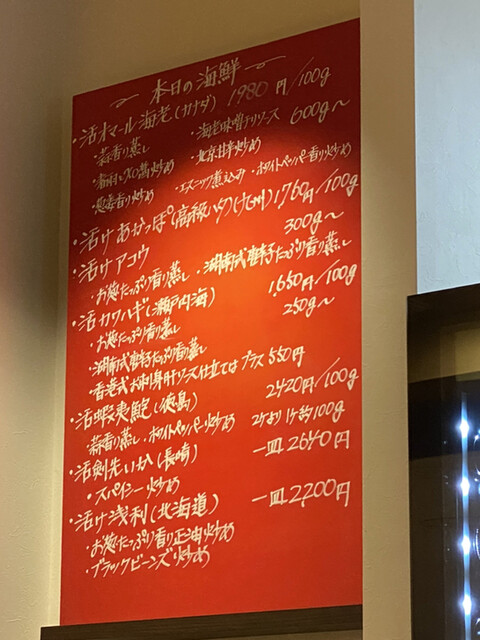 本日の海鮮
・活オマール海老(カナダ) 1980円/100g
600g〜
・蒜香り蒸し ・海老味噌チリソース
・XO醤炒め ・北京甘辛炒め
・葱姜香り炒め ・エスニック煮込み ・ホワイトペッパー香り炒め
・活けあかっぽ(高級ハタ)(九州) 1,760円/100g
・活けアコウ 300g〜
・お葱たっぷり香り蒸し ・湖南式唐辛子たっぷり香り蒸し
・活カワハギ(瀬戸内海) 1,650円/100g
・お葱たっぷり香り蒸し 250g〜
・湖南式唐辛子たっぷり香り蒸し
・香港式お刺身肝ソース仕立ては プラス550円
・活蝦夷鮑(徳島) 2420円/100g
・蒜香り蒸し ・ホワイトペッパー炒め 2ケより 1ケ約100g
・活剣先いか(長崎) 一皿2640円
・スパイシー炒め
・活け浅利(北海道) 一皿2,200円
・お葱たっぷり香り正油炒め
・ブラックビーンズ炒め